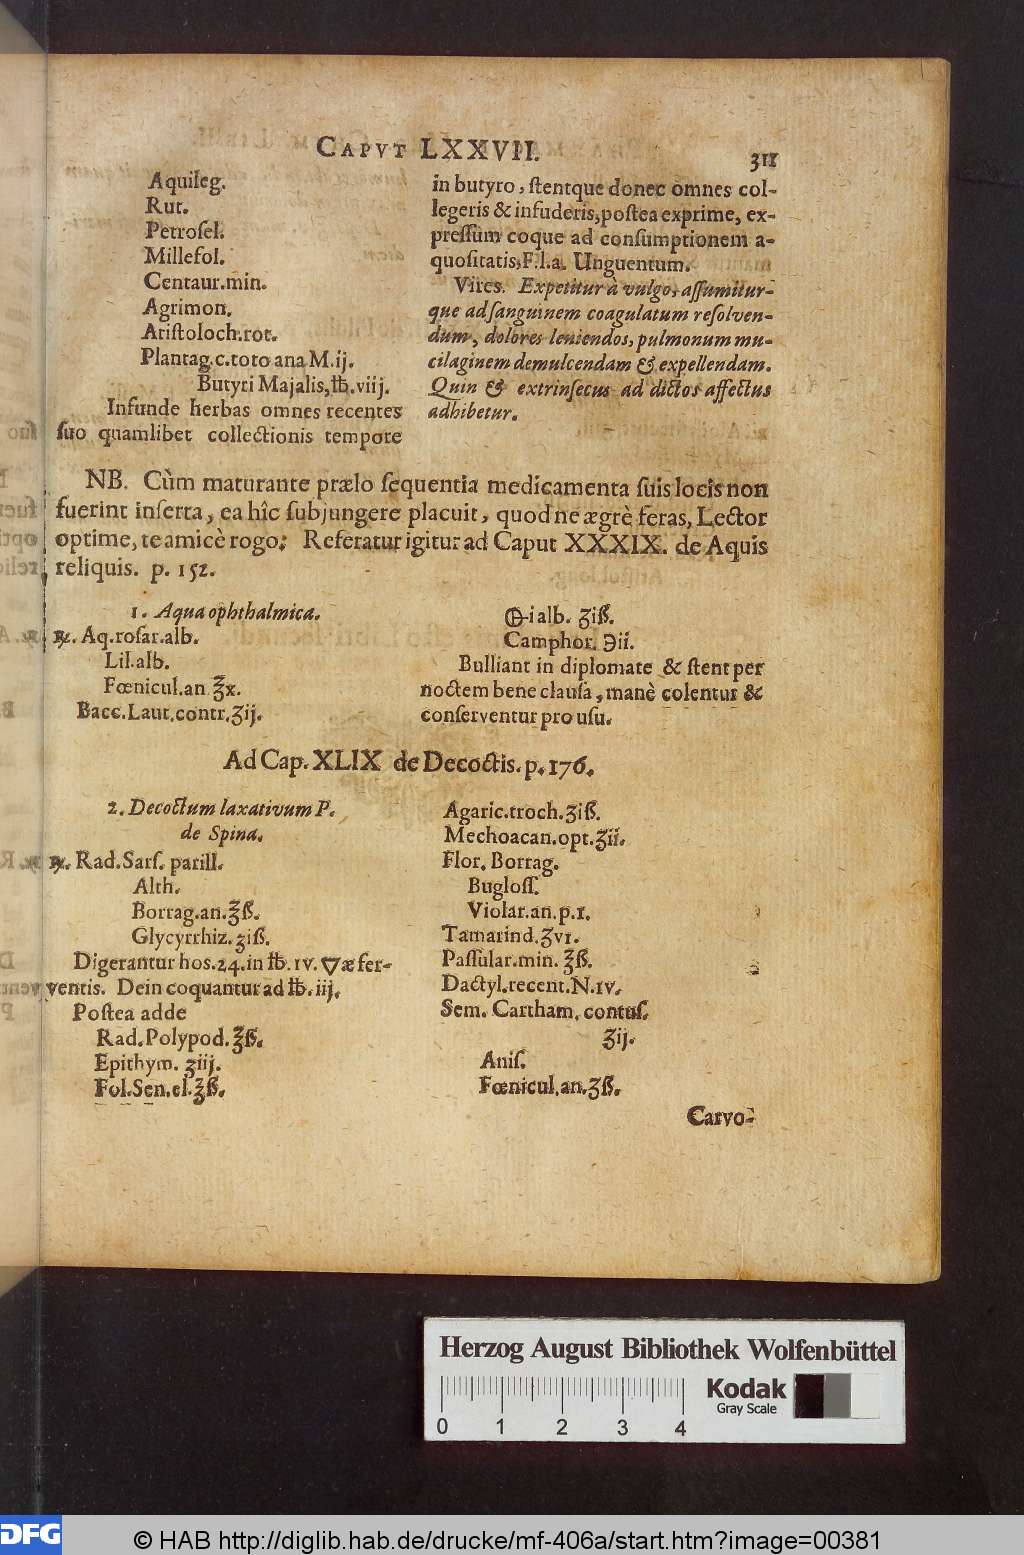 CAPVT LXXVII.
311
Aquileg.
Rut.
Petroſel.
Millefol.
Centaur.min.
Agrimon.
Ariſtoloch.rot.
Plantag.c.toto ana M.ij.
Butyri Majalis, ℔.viij.
Infunde herbas omnes recentes
ſuo quamlibet collectionis tempore
in butyro, ſtentque donec omnes col-
legeris & infuderis, poſtea exprime, ex-
preſſum coque ad conſumptionem a-
quoſitatis, F.l.a. Unguentum.
Vires. Expetitur à vulgo, aſſumitur-
que ad ſanguinem coagulatum reſolven-
dum, dolores leniendos, pulmonum mu-
cilaginem demulcendam & expellendam.
Quin & extrinſecus ad dictos affectus
adhibetur.
NB. Cùm maturante prælo ſequentia medicamenta ſuis locis non
fuerint inſerta, ea hîc ſubjungere placuit, quod ne ægrè feras, Lector
optime, te amicè rogo: Referatur igitur ad Caput XXXIX. de Aquis
reliquis. p. 152.
1. Aqua ophthalmica.
℞. Aq.roſar.alb.
Lil.alb.
Fœnicul.an ℥x.
Bacc.Laur.contr.ʒij.
🜕i alb. ʒiß.
Camphor. ℈ii.
Bulliant in diplomate & ſtent per
noctem bene clauſa, manè colentur &
conſerventur pro uſu.
Ad Cap. XLIX de Decoctis. p. 176.
2. Decoctum laxativum P.
de Spina.
℞. Rad.Sarſ. parill.
Alth.
Borrag.an.℥ß.
Glycyrrhiz. ʒiß.
Digerantur hos.24.in ℔.IV. ▽æ fer-
ventis. Dein coquantur ad ℔.iij.
Poſtea adde
Rad.Polypod.℥ß.
Epithym. ʒiij.
Fol.Sen.el.℥ß.
Agaric.troch.ʒiß.
Mechoacan.opt.ʒii.
Flor. Borrag.
Bugloſſ.
Violar.an.p.1.
Tamarind.ʒVI.
Paſſular.min. ℥ß.
Dactyl.recent.N.IV.
Sem. Cartham. contuſ.
ʒij.
Aniſ.
Fœnicul.an.ʒß.
Carvo-
Herzog August Bibliothek Wolfenbüttel
0 1 2 3 4
Kodak
Gray Scale
DFG
© HAB http://diglib.hab.de/drucke/mf-406a/start.htm?image=00381